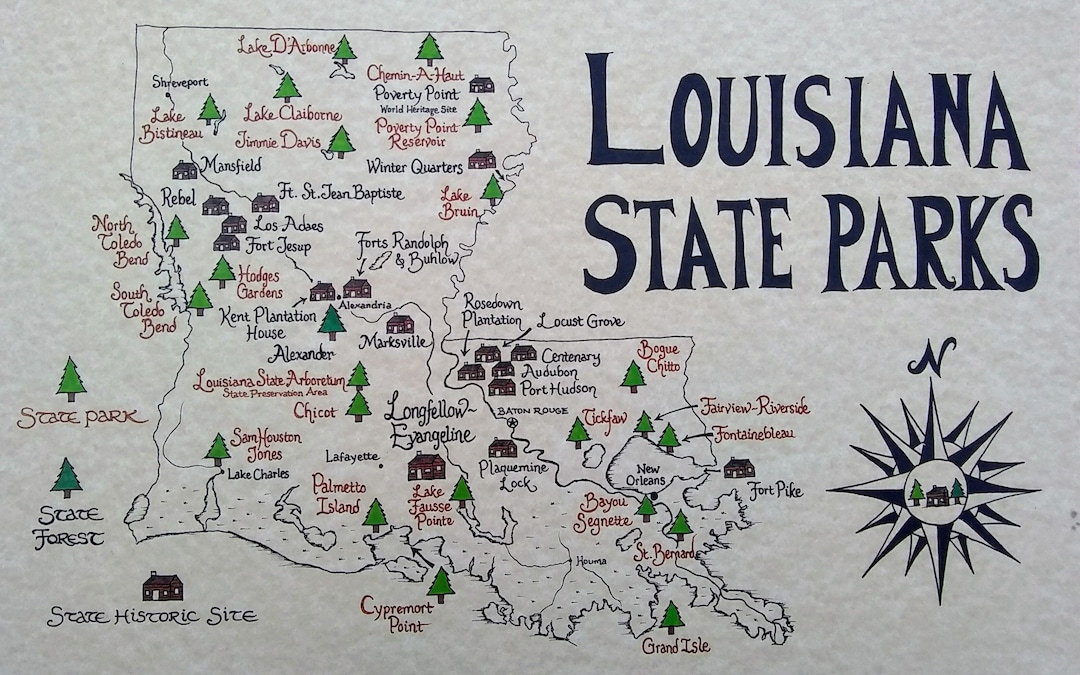 LOUISIANA
STATE PARKS
Lake D'Arbonne
Chemin-A-Haut
Shreveport
Poverty Point
World Heritage Site
Lake
Bistineau
Lake Claiborne
Poverty Point
Reservoir
Jimmie Davis
Mansfield
Winter Quarters
Rebel
Ft. St. Jean Baptiste
Lake
Bruin
Los Adaes
Fort Jesup
North
Toledo
Bend
Forts Randolph
& Buhlow
Hodges
Gardens
South
Toledo
Bend
Alexandria
Kent Plantation
House
Rosedown
Plantation
Locust Grove
Marksville
Alexander
Centenary
Audubon
Port Hudson
Bogue
Chitto
Louisiana State Arboretum
State Preservation Area
Chicot
Longfellow~
Evangeline
BATON ROUGE
Tickfaw
Fairview~Riverside
Fontainebleau
STATE PARK
Sam Houston
Jones
Lake Charles
Lafayette
Plaquemine
Lock
New
Orleans
Fort Pike
Palmetto
Island
Lake
Fausse
Pointe
Bayou
Segnette
St. Bernard
STATE
FOREST
Houma
Cypremort
Point
Grand Isle
STATE HISTORIC SITE
N